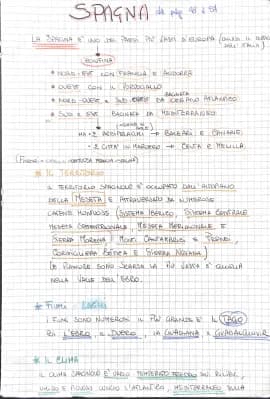 SPAGNA da pag 48 a 51
LA SPAGNA E' UNO DEI PAESI PIU' VASTI D'EUROPA
CONFINA
* NORD-EST CON FRANCIA E ANDORRA
* OVEST CON IL PORTOGALLO
* NORD-OVEST E SUD-OVEST BAGNATA DA OCEANO ATLANTICO
* SUD E EST BAGNATA DA MEDITERRANEO
HA 2 ARCIPELAGHI → BALEARI E CANARIE
2 CITTA' IN MAROCCO → CEUTA E MELILLA
* IL TERRITORIO
IL TERRITORIO SPAGNOLO E' OCCUPATO DALL'ALTOPIANO
DELLA MESETA E ATTRAVERSATO DA NUMEROSE
CATENE MONTUOSE (SISTEMA IBERICO, SISTEMA CENTRALE
MESETA SETTENTRIONALE, MESETA MERIDIONALE E
SIERRA MORENA) MONTI CANTABRICI E PIRENEI
CORDIGLIERA BETICA E SIERRA NEVADA)
LE PIANURE SONO SCARSE LA PIU' VASTA E' QUELLA
NELLA VALLE DEL EBRO.
* FIUMI LAGHI
I FIUMI SONO NUMEROSI IL PIU' GRANDE E' IL TAGO
L'EBRO, IL DUERO, LA GUADIANA E GUADALQUIVIR
* IL CLIMA
IL CLIMA SPAGNOLO E' VARIO
UMIDO E PIOVOSO L'ATLANTICO, MEDITERRANEO SULLA